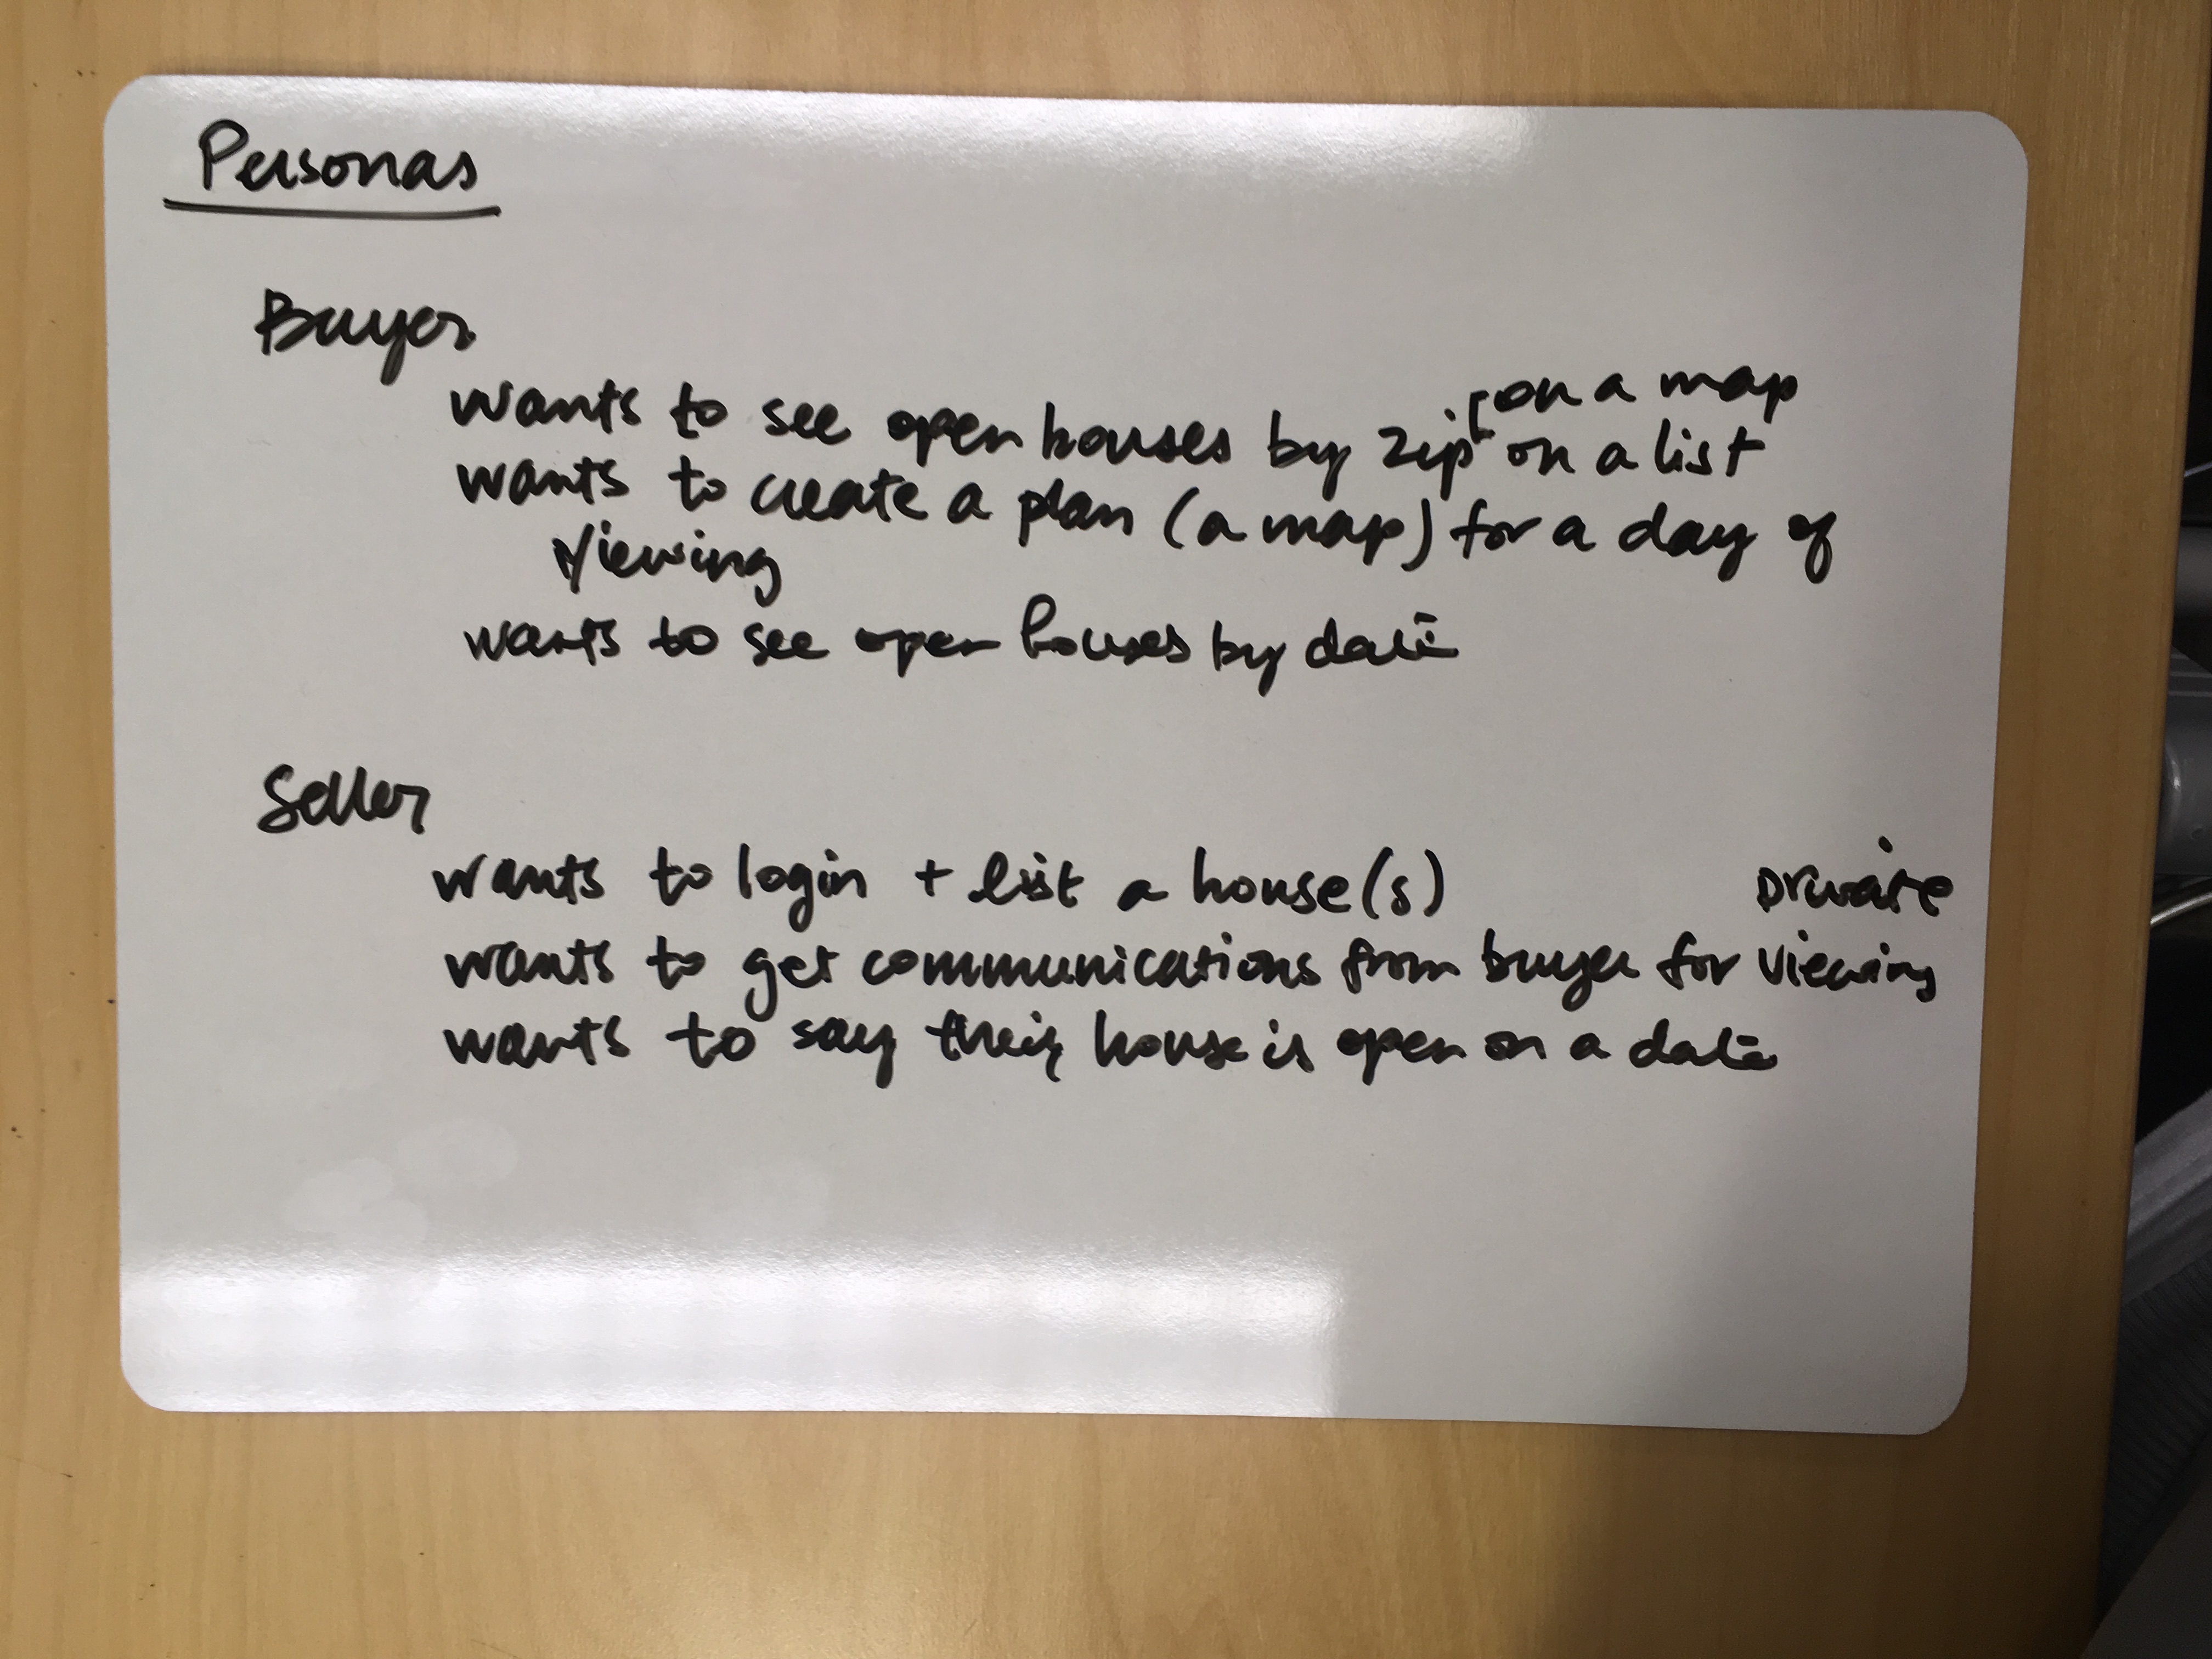 Personas
Buyer
wants to see open houses by zip [on a map
on a list
wants to create a plan (a map) for a day of
viewing
wants to see open houses by date
Seller
wants to login + list a house(s)
private
wants to get communications from buyer for viewing
wants to say their house is open on a date